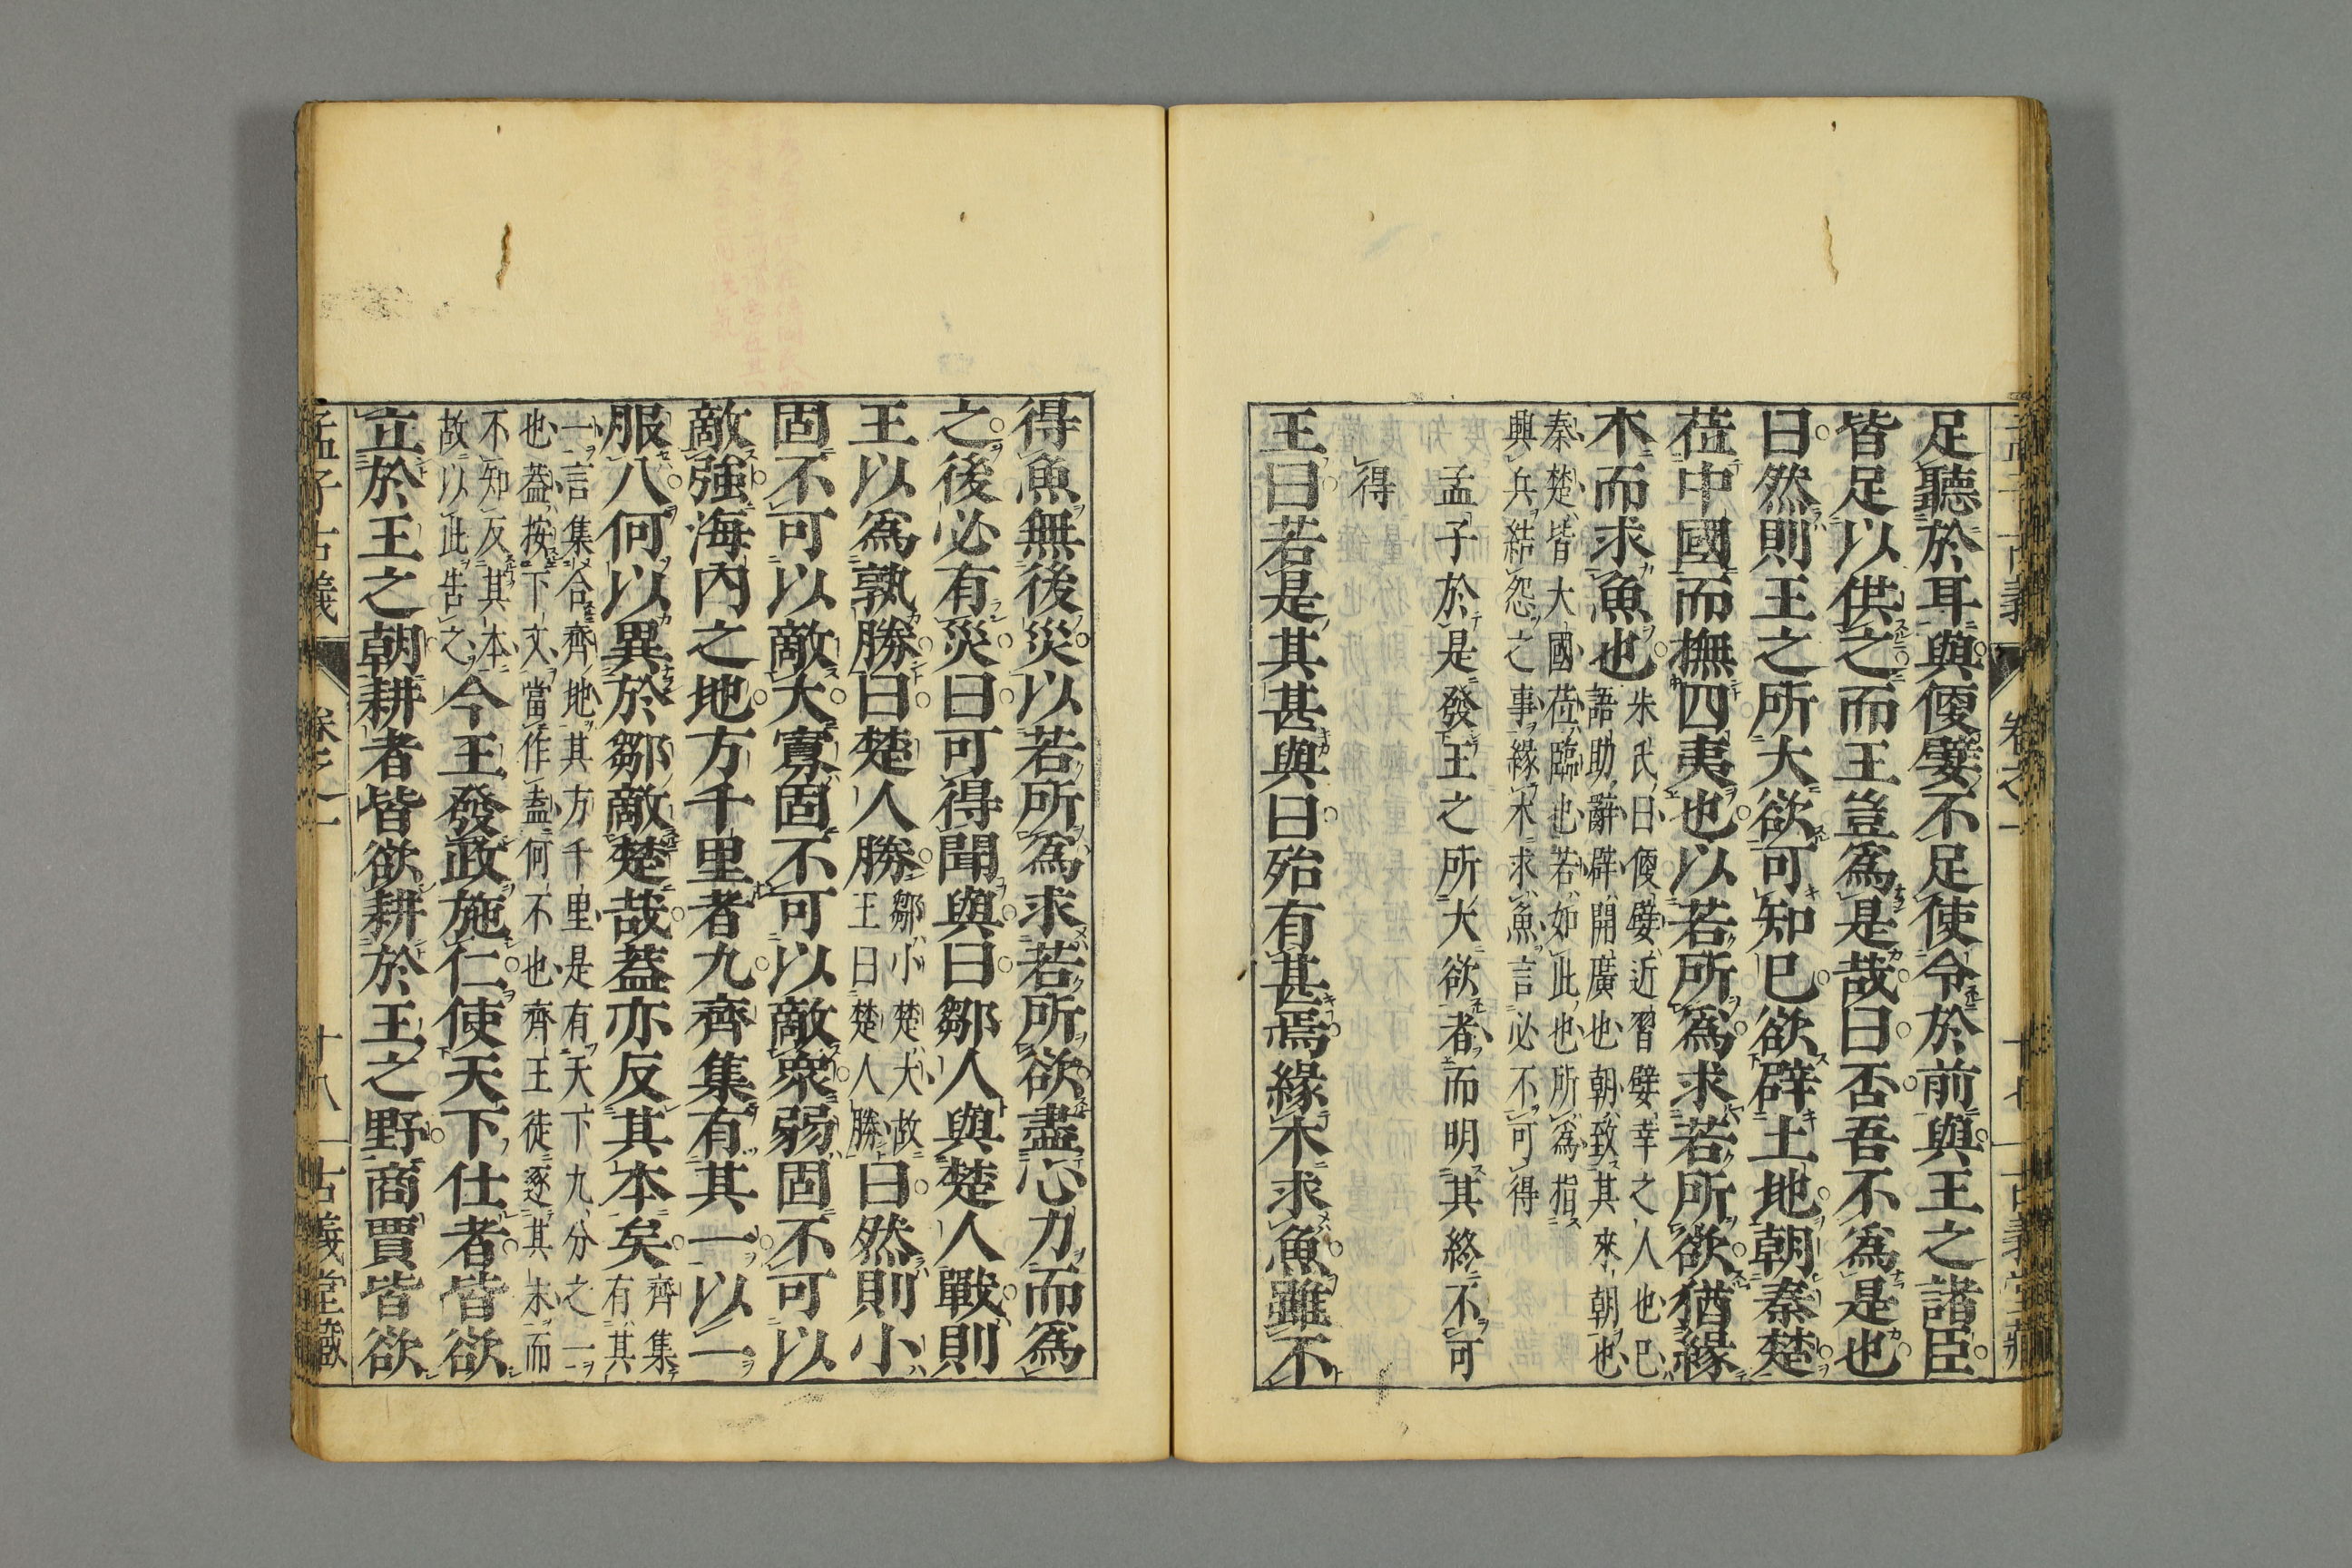 足聽於耳與便嬖不足使令於前與王之諸臣
皆足以供之而王豈爲是哉曰否吾不爲是也
曰然則王之所大欲可知已欲辟土地朝秦楚
莅中國而撫四夷也以若所爲求若所欲猶緣
木而求魚也
朱氏曰便嬖近習嬖幸之人也已
語助辭辟開廣也朝致其來朝也
秦楚皆大國莅臨也若如此也所爲指
興兵結怨之事緣木求魚言必不可得
孟子於是發王之所大欲者而明其終不可
得
王曰若是其甚與曰殆有甚焉緣木求魚雖不
得魚無後災以若所爲求若所欲盡心力而爲
之後必有災曰可得聞與曰鄒人與楚人戰則
王以爲孰勝曰楚人勝
鄒小楚大故
王曰楚人勝
曰然則小
固不可以敵大寡固不可以敵衆弱固不可以
敵強海內之地方千里者九齊集有其一以一
服八何以異於鄒敵楚哉蓋亦反其本矣
齊集
有其
一言集合齊地其方千里是有天下九分之一
也蓋按下文當作盍何不也齊王徒逐其末而
不知反其本
故以此告之
今王發政施仁使天下仕者皆欲
立於王之朝耕者皆欲耕於王之野商賈皆欲
孟子古義
卷之一
十八
古義堂藏